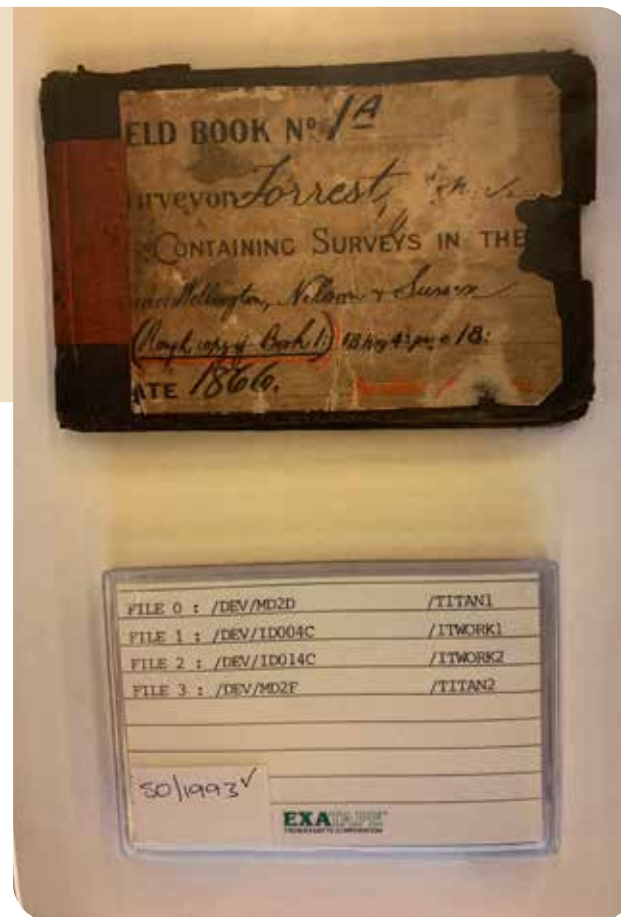 ELD BOOK Nº 1A
urveyor Forrest,
CONTAINING SURVEYS IN THE
Wellington, Nelson & Sussex
(Rough copy of Book 1.) 18:
ATE 1866.
FILE 0 : /DEV/MD2D /TITAN1
FILE 1 : /DEV/ID004C /ITWORK1
FILE 2 : /DEV/ID014C /ITWORK2
FILE 3 : /DEV/MD2F /TITAN2
50/1993✓
EXATAPE